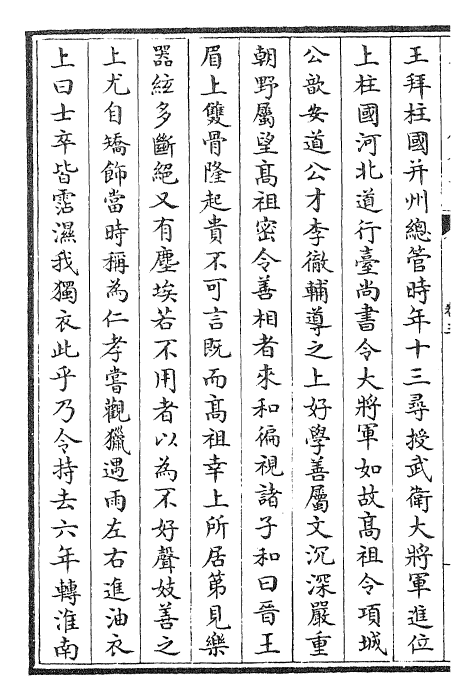 王拜柱國并州總管時年十三尋授武衛大將軍進位
上柱國河北道行臺尚書令大將軍如故髙祖令項城
公歆安道公才李徹輔導之上好學善屬文沉深嚴重
朝野屬望髙祖密令善相者來和徧視諸子和曰晉王
眉上雙骨隆起貴不可言既而髙祖幸上所居第見樂
器絃多斷絕又有塵埃若不用者以為不好聲妓善之
上尤自矯飾當時稱為仁孝嘗觀獵遇雨左右進油衣
上曰士卒皆霑濕我獨衣此乎乃令持去六年轉淮南